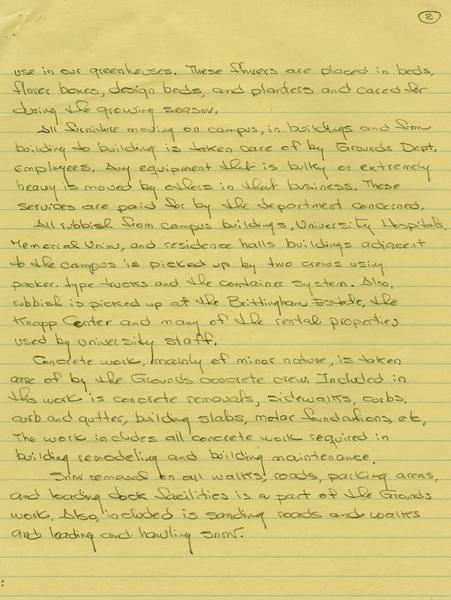 2
use in our greenhouses. These flowers are placed in beds,
flower boxes, design beds, and planters and cared for
during the growing season.
All furniture moving on campus, in buildings and from
building to building is taken care of by Grounds Dept.
employees. Any equipment that is bulky or extremely
heavy is moved by others in that business. These
services are paid for by the department concerned.
All rubbish from campus buildings, University Hospitals,
Memorial Union, and residence halls buildings adjacent
to the campus is picked up by two crews using
packer type trucks and the container system. Also,
rubbish is picked up at the Brittingham Estate, the
Knapp Center and many of the rental properties
used by university staff.
Concrete work, mainly of minor nature, is taken
care of by the Grounds concrete crew. Included in
this work is concrete removals, sidewalks, curbs,
curb and gutter, building slabs, motar foundations, etc.
The work includes all concrete work required in
building remodeling and building maintenance.
Snow removal on all walks, roads, parking areas,
and loading dock facilities is a part of the Grounds
work. Also, included is sanding roads and walks
and loading and hauling snow.